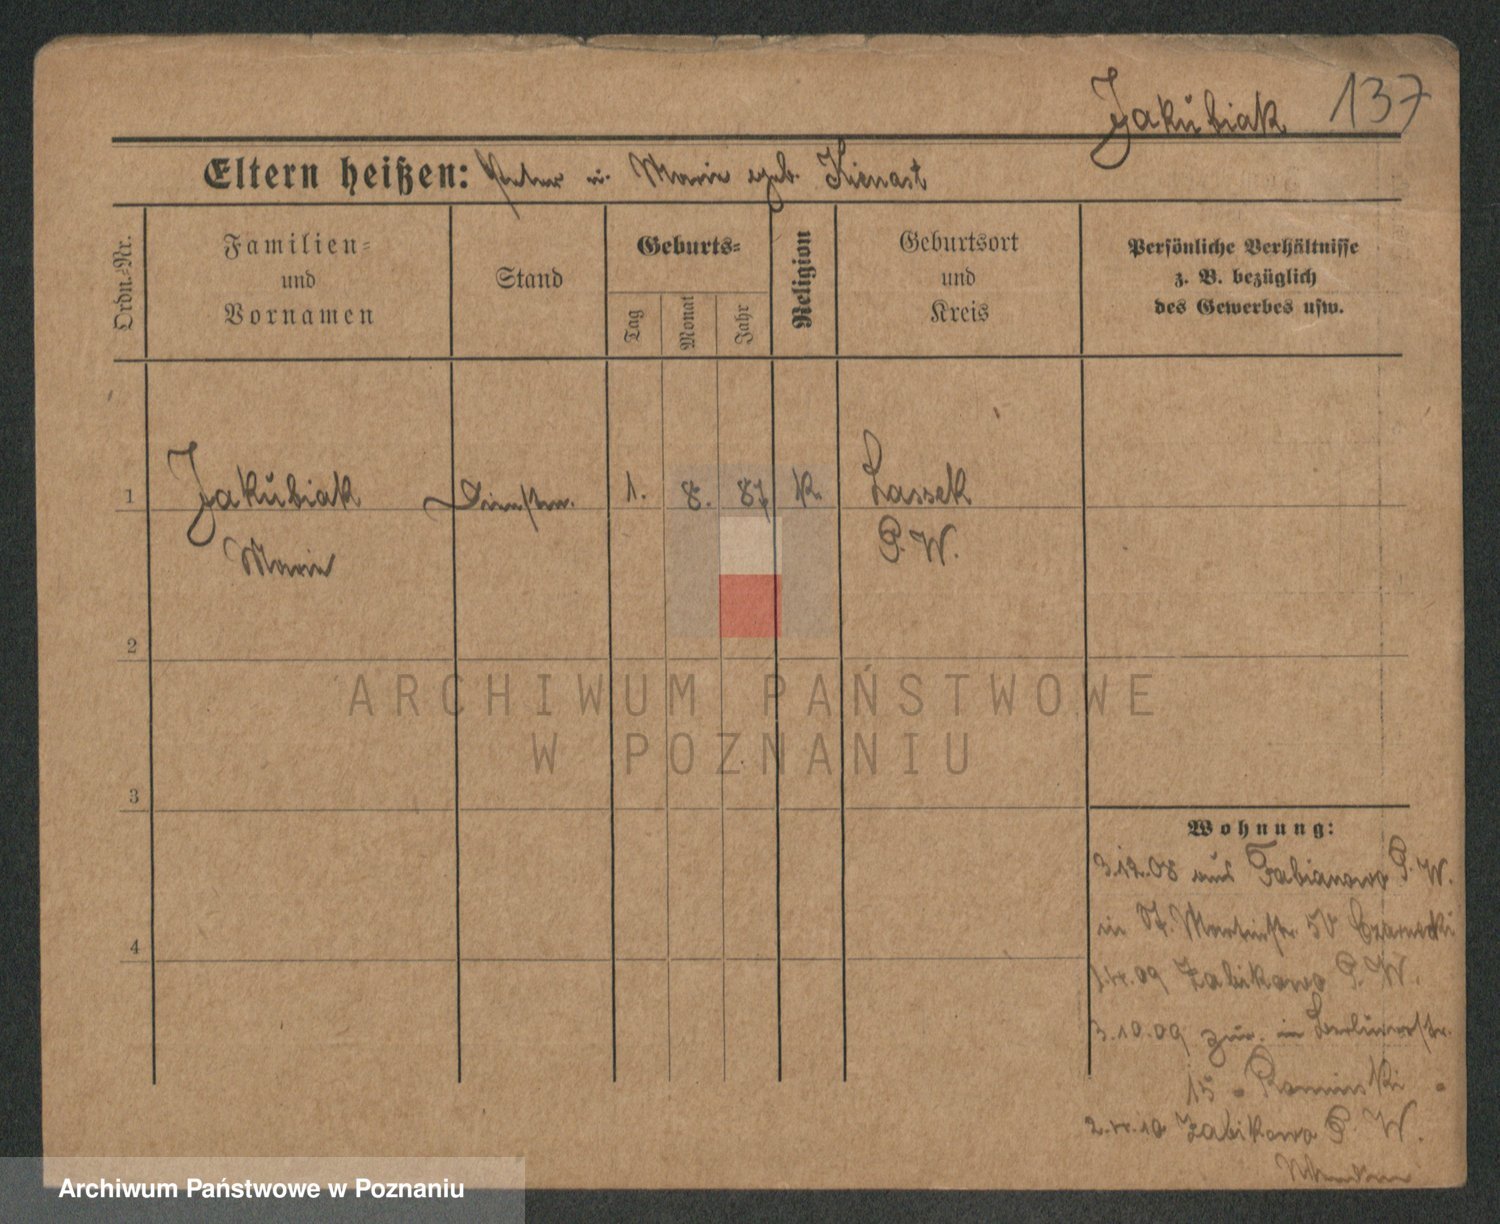 Jakubiak 137
Eltern heißen: Peter u. Marie geb. Kienast
Ordn.-Nr.
Familien-
und
Vornamen
Stand
Geburts-
Tag
Monat
Jahr
Religion
Geburtsort
und
Kreis
Persönliche Verhältnisse
z. B. bezüglich
des Gewerbes usw.
1 Jakubiak Dienstm. 1. 8. 87 k. Lassek
Marie P. W.
2
ARCHIWUM PAŃSTWOWE
W POZNANIU
3
Wohnung:
3.12.08 aus Fabianowo P. W.
in St. Martinstr. 50 Czarnecki
09 Zabikowo P. W.
4
3.10.09 zur. in
15
10 Zabikowo P. W.
Archiwum Państwowe w Poznaniu